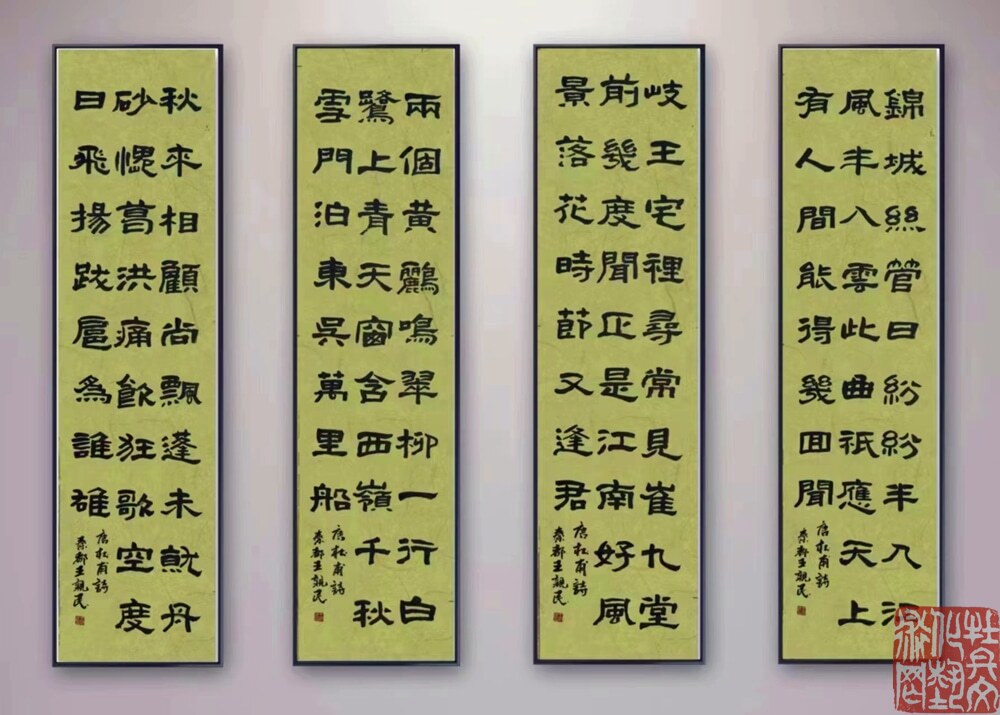 錦城絲管日紛紛半入江
風半入雲此曲祇應天上
有人間能得幾回聞
唐杜甫詩
秦都王親民
岐王宅裡尋常見崔九堂
前幾度聞正是江南好風
景落花時節又逢君
唐杜甫詩
秦都王親民
兩個黃鸝鳴翠柳一行白
鷺上青天窗含西嶺千秋
雪門泊東吳萬里船
唐杜甫詩
秦都王親民
秋來相顧尚飄蓬未就丹
砂愧葛洪痛飲狂歌空度
日飛揚跋扈為誰雄
唐杜甫詩
秦都王親民